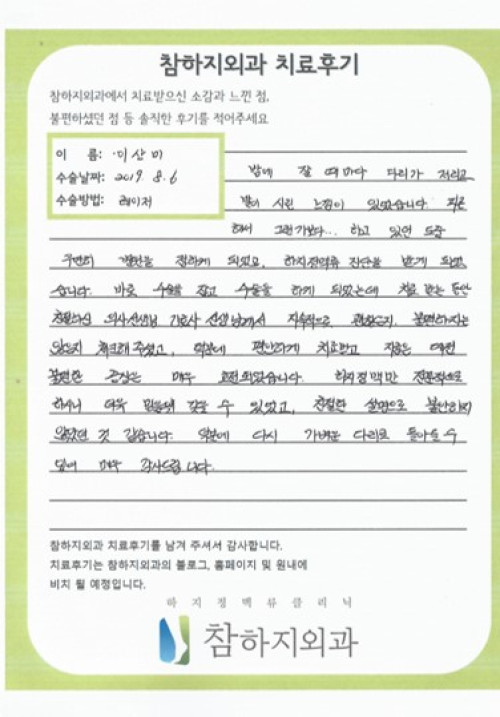 참하지외과 치료후기
참하지외과에서 치료받으신 소감과 느낀 점,
불편하셨던 점 등 솔직한 후기를 적어주세요
이 름: 이상미
수술날짜: 2019. 8. 6
수술방법: 레이저
밤에 잘 때마다 다리가 저리고
발이 시린 느낌이 있었습니다. 피곤
해서 그런가보다... 하고 있던 도중
우연히 병원을 접하게 되었고, 하지정맥류 진단을 받게 되었
습니다. 바로 수술을 잡고 수술을 하게 되었는데 치료 받는 동안
친절하신 의사선생님 간호사 선생님께서 지속적으로 괜찮은지, 불편하지는
않은지 체크해 주셨고, 덕분에 편안하게 치료받고 지금은 예전
불편한 증상은 매우 호전되었습니다. 하지정맥만 전문적으로
하시니 더욱 믿음이 갖을 수 있었고, 친절한 설명으로 불안하지
않았던 것 같습니다. 덕분에 다시 가벼운 다리로 돌아올 수
있어 매우 감사드립니다.
참하지외과 치료후기를 남겨 주셔서 감사합니다.
치료후기는 참하지외과의 블로그, 홈페이지 및 원내에
비치 될 예정입니다.
하지정맥류클리닉
참하지외과